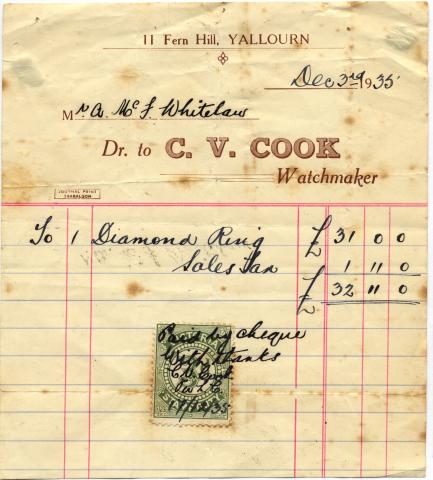 11 Fern Hill, YALLOURN
Dec 3rd 1935
Mr A. McF. Whitelaw
Dr. to C. V. COOK
Watchmaker
JOURNAL PRINT
TRARALGON
To 1 Diamond Ring £ 31 0 0
Sales Tax 1 11 0
£ 32 11 0
Paid by cheque
With thanks
C.V. Cook
17/12/35